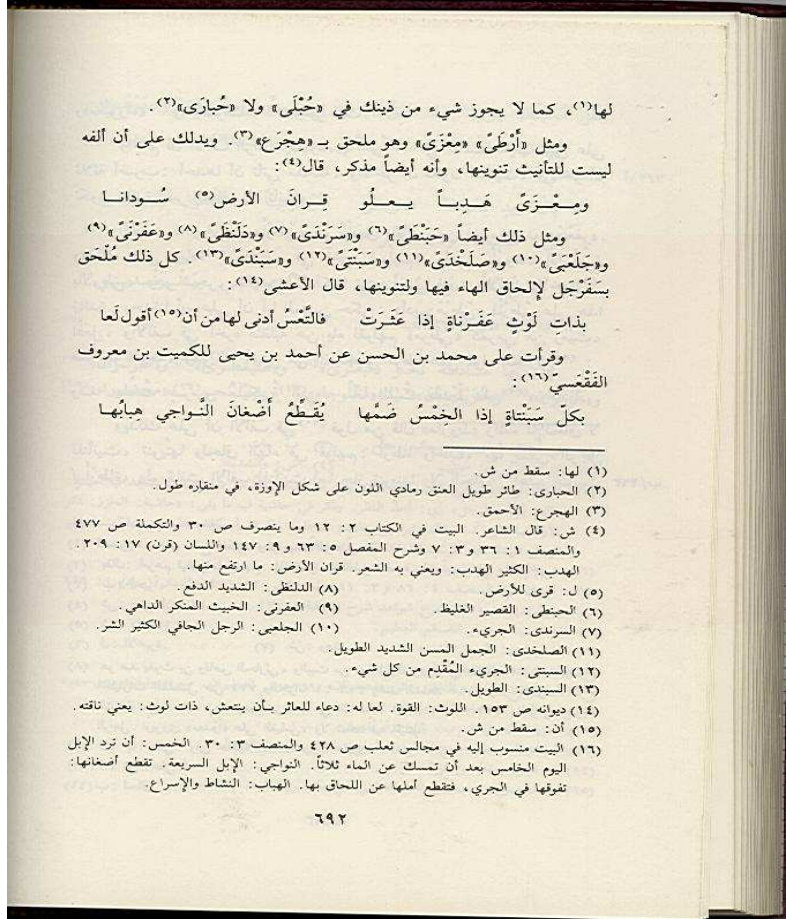 لها(١)، كما لا يجوز شيء من ذينك في «حُبْلَى» ولا «حُبارَى»(٢).
ومثل «أَرْطَىً» «مِعْزَىً» وهو ملحق بـ «هِجْرَع»(٣). ويدلك على أن ألفه
ليست للتأنيث تنوينها، وأنه أيضاً مذكر، قال(٤):
ومِـعْـزَىً هَـدِبـاً يـعـلُو قِـرانَ الأرض(٥) سُـودانـا
ومثل ذلك أيضاً «حَبَنْطَىً»(٦) و«سَرَنْدَىً»(٧) و«دَلَنْظَىً»(٨) و«عَفَرْنَىً»(٩)
و«جَلَعْبَىً»(١٠) و«صَلَخْدَىً»(١١) و«سَبَنْتَىً»(١٢) و«سَبَنْدَىً»(١٣). كل ذلك مُلْحَق
بسَفَرْجَل لإلحاق الهاء فيها ولتنوينها، قال الأعشى(١٤):
بذاتِ لَوْثٍ عَفَـرْناةٍ إذا عَثَـرَتْ فالتَّعْسُ أدنى لها من أن(١٥) أقول لَعا
وقرأت على محمد بن الحسن عن أحمد بن يحيى للكميت بن معروف
الفَقْعَسيّ(١٦):
بكلّ سَبَنْتاةٍ إذا الخِمْسُ ضَمَّها يُقَـطِّعُ أَضْغانَ النَّـواجي هبابُهـا
(١) لها: سقط من ش.
(٢) الحبارى: طائر طويل العنق رمادي اللون على شكل الإوزة، في منقاره طول.
(٣) الهجرع: الأحمق.
(٤) ش: قال الشاعر. البيت في الكتاب ٢: ١٢ وما ينصرف ص ٣٠ والتكملة ص ٤٧٧
والمنصف ١: ٣٦ و٣: ٧ وشرح المفصل ٥: ٦٣ و٩: ١٤٧ واللسان (قرن) ١٧: ٢٠٩.
الهدب: الكثير الهدب: ويعني به الشعر. قران الأرض: ما ارتفع منها.
(٥) ل: قرى للأرض. (٨) الدلنظى: الشديد الدفع.
(٦) الحبنطى: القصير الغليظ. (٩) العفرنى: الخبيث المنكر الداهي.
(٧) السرندى: الجريء. (١٠) الجلعبى: الرجل الجافي الكثير الشر.
(١١) الصلخدى: الجمل المسن الشديد الطويل.
(١٢) السبنتى: الجريء المُقْدِم من كل شيء.
(١٣) السبندى: الطويل.
(١٤) ديوانه ص ١٥٣. اللوث: القوة. لعا له: دعاء للعاثر بـأن ينتعش، ذات لوث: يعني ناقته.
(١٥) أن: سقط من ش.
(١٦) البيت منسوب إليه في مجالس ثعلب ص ٤٢٨ والمنصف ٣: ٣٠. الخمس: أن ترد الإبل
اليوم الخامس بعد أن تمسك عن الماء ثلاثاً. النواجي: الإبل السريعة. تقطع أضغانها:
تفوقها في الجري، فتقطع أملها عن اللحاق بها. الهباب: النشاط والإسراع.
٦٩٢